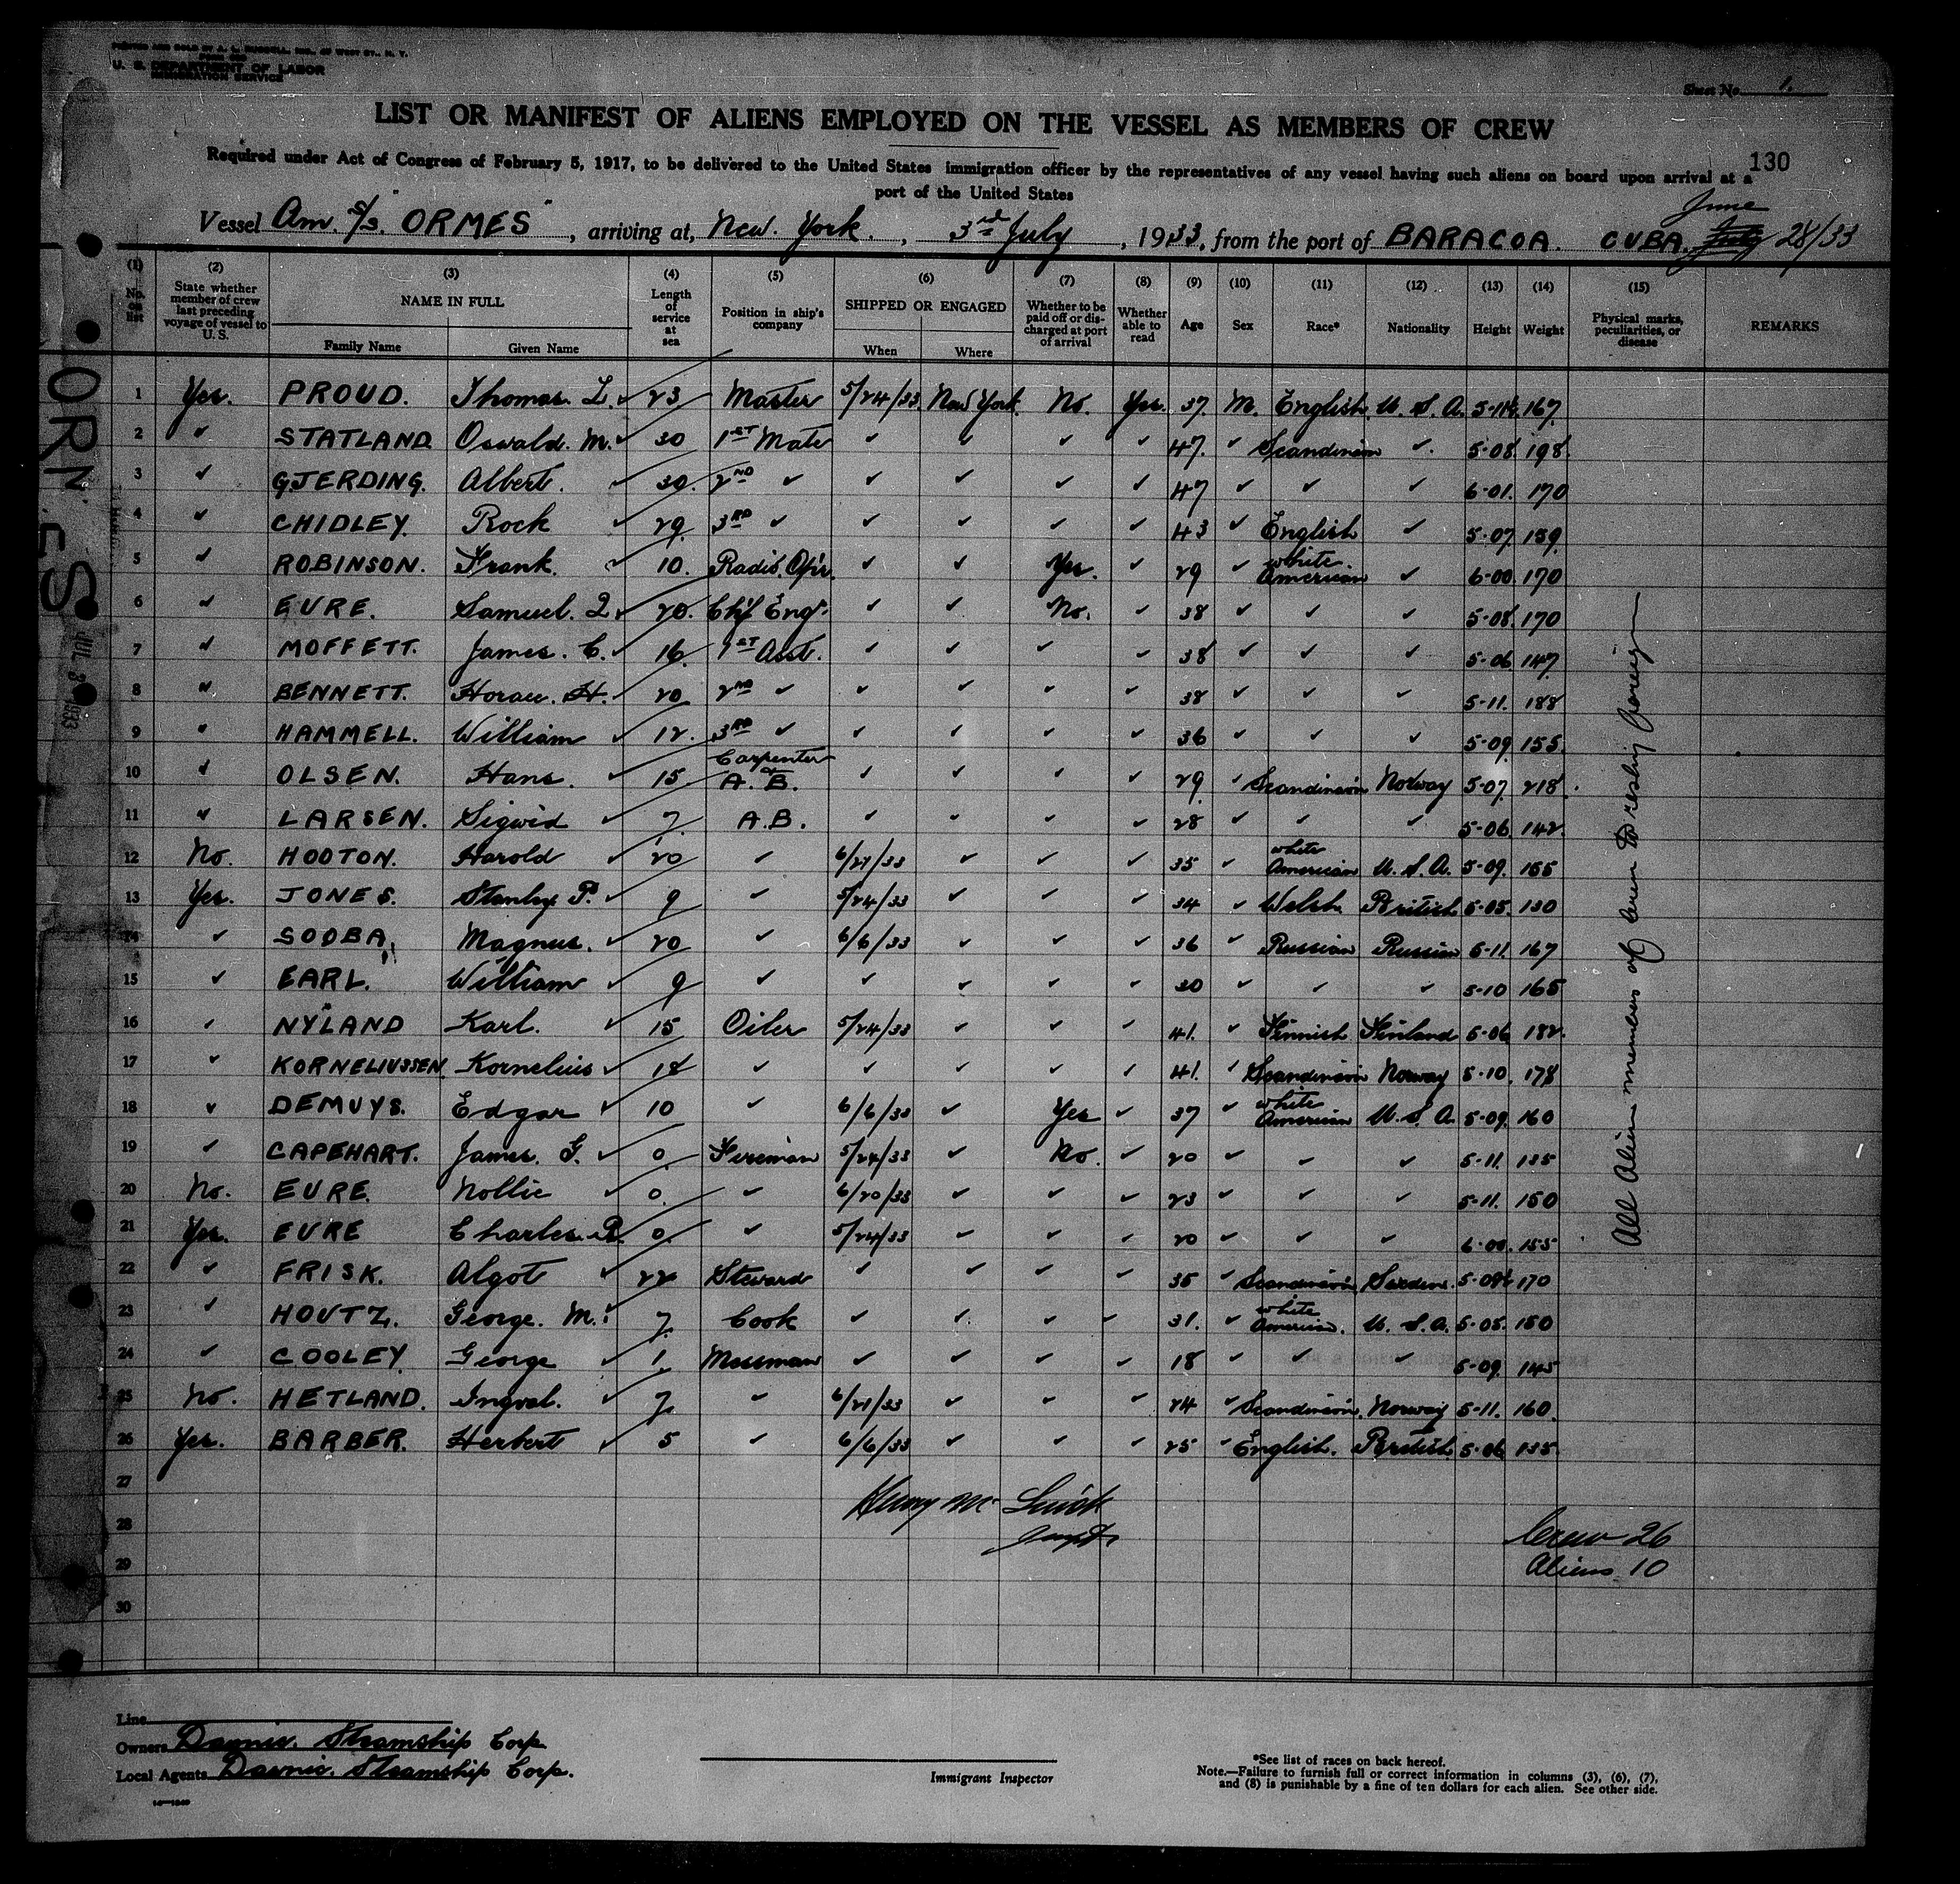 PRINTED AND SOLD BY A. L. RUSSELL, INC., WEST ST., N. Y.
U. S. DEPARTMENT OF LABOR
IMMIGRATION SERVICE
Sheet No. 1.
LIST OR MANIFEST OF ALIENS EMPLOYED ON THE VESSEL AS MEMBERS OF CREW
130
Required under Act of Congress of February 5, 1917, to be delivered to the United States immigration officer by the representatives of any vessel having such aliens on board upon arrival at a
port of the United States
June
Vessel Am. S/S. "ORMES", arriving at, New York., 3rd July, 1933, from the port of BARACOA. CUBA. July 28/33
(1) No. on list (2) State whether member of crew last preceding voyage of vessel to U. S. (3) NAME IN FULL Family Name Given Name (4) Length of service at sea (5) Position in ship's company (6) SHIPPED OR ENGAGED When Where (7) Whether to be paid off or discharged at port of arrival (8) Whether able to read (9) Age (10) Sex (11) Race* (12) Nationality (13) Height (14) Weight (15) Physical marks, peculiarities, or disease REMARKS
1 Yes. PROUD. Thomas. L. ✓ 23 Master 5/24/33 New York. No. Yes. 37. M. English. U. S. A. 5-11½ 167.
2 ✓ STATLAND. Oswald. M. ✓ 30 1ST Mate ✓ ✓ ✓ ✓ 47. ✓ Scandinavian ✓ 5-08. 198.
3 ✓ GJERDING. Albert. ✓ 30. 2ND ✓ ✓ ✓ ✓ ✓ 47 ✓ ✓ ✓ 6-01. 170
4 ✓ CHIDLEY. Rock ✓ 29. 3RD ✓ ✓ ✓ ✓ ✓ 43 ✓ English ✓ 5-07. 159.
5 ✓ ROBINSON. Frank. ✓ 10. Radio. Op'r. ✓ ✓ Yes. ✓ 29 ✓ white American ✓ 6-00. 170
6 ✓ EURE. Samuel. Q. ✓ 20. Chf Engr. ✓ ✓ No. ✓ 38 ✓ ✓ ✓ 5-08. 170
7 ✓ MOFFETT. James. C. ✓ 16. 1ST Asst. ✓ ✓ ✓ ✓ 38 ✓ ✓ ✓ 5-06 147
8 ✓ BENNETT. Horace. H. ✓ 20 2ND ✓ ✓ ✓ ✓ ✓ 38 ✓ ✓ ✓ 5-11. 188
9 ✓ HAMMELL. William ✓ 12. 3RD ✓ ✓ ✓ ✓ ✓ 36 ✓ ✓ ✓ 5-09 155.
10 ✓ OLSEN. Hans. ✓ 15 Carpenter & A. B. ✓ ✓ ✓ ✓ 29. ✓ Scandinavian Norway 5-07. 218.
11 ✓ LARSEN. Sigwid ✓ 7. A.B. ✓ ✓ ✓ ✓ 28 ✓ ✓ ✓ 5-06. 142.
12 No. HOOTON. Harold ✓ 20 ✓ 6/21/33 ✓ ✓ ✓ 35 ✓ white American U. S. A. 5-09. 155
13 Yes. JONES. Stanley P. ✓ 9 ✓ 5/24/33 ✓ ✓ ✓ 34 ✓ Welsh British 5-05. 130
14 ✓ SOOBA. Magnus. ✓ 20 ✓ 6/6/33 ✓ ✓ ✓ 36 ✓ Russian Russian 5-11. 167
15 ✓ EARL. William ✓ 9 ✓ ✓ ✓ ✓ ✓ 30 ✓ ✓ ✓ 5-10 165
16 ✓ NYLAND Karl. ✓ 15 Oiler 5/24/33 ✓ ✓ ✓ 41. ✓ Finnish Finland 5-06 182.
17 ✓ KORNELIUSSEN. Kornelius ✓ 18 ✓ ✓ ✓ ✓ ✓ 41. ✓ Scandinavian Norway 5-10. 178
18 ✓ DEMUYS. Edgar ✓ 10 ✓ 6/6/33 ✓ Yes ✓ 37 ✓ white American U. S. A. 5-09. 160
19 ✓ CAPEHART. James. G. ✓ 0. Fireman 5/24/33 ✓ No. ✓ 20 ✓ ✓ ✓ 5-11. 135
20 No. EURE. Nollie ✓ 0. ✓ 6/20/33 ✓ ✓ ✓ 23 ✓ ✓ ✓ 5-11. 150
21 Yes. EURE Charles. R. 0. ✓ 5/24/33 ✓ ✓ ✓ 20 ✓ ✓ ✓ 6-00. 155
22 ✓ FRISK. Algot ✓ 22 Steward ✓ ✓ ✓ ✓ 35 ✓ Scandinavian Sweden. 5-09½ 170
23 ✓ HOUTZ. George. M. ✓ 7. Cook ✓ ✓ ✓ ✓ 31. ✓ white American. U. S. A. 5-05. 150
24 ✓ COOLEY. George ✓ 1. Messman ✓ ✓ ✓ ✓ 18 ✓ ✓ ✓ 5-09. 145
25 No. HETLAND. Ingval. ✓ 7. ✓ 6/21/33 ✓ ✓ ✓ 24 ✓ Scandinavian. Norway 5-11. 160.
26 Yes. BARBER. Herbert ✓ 5 ✓ 6/6/33 ✓ ✓ ✓ 25 ✓ English. British 5-06 135.
27
28
29
30
All Alien members of crew to reship foreign
Henry Mc
Inspt.
Crew 26
Aliens 10
JUL 3 1933
Line
Owners Steamship Corp.
Local Agents Steamship Corp.
Immigrant Inspector
*See list of races on back hereof.
Note.—Failure to furnish full or correct information in columns (3), (6), (7),
and (8) is punishable by a fine of ten dollars for each alien. See other side.